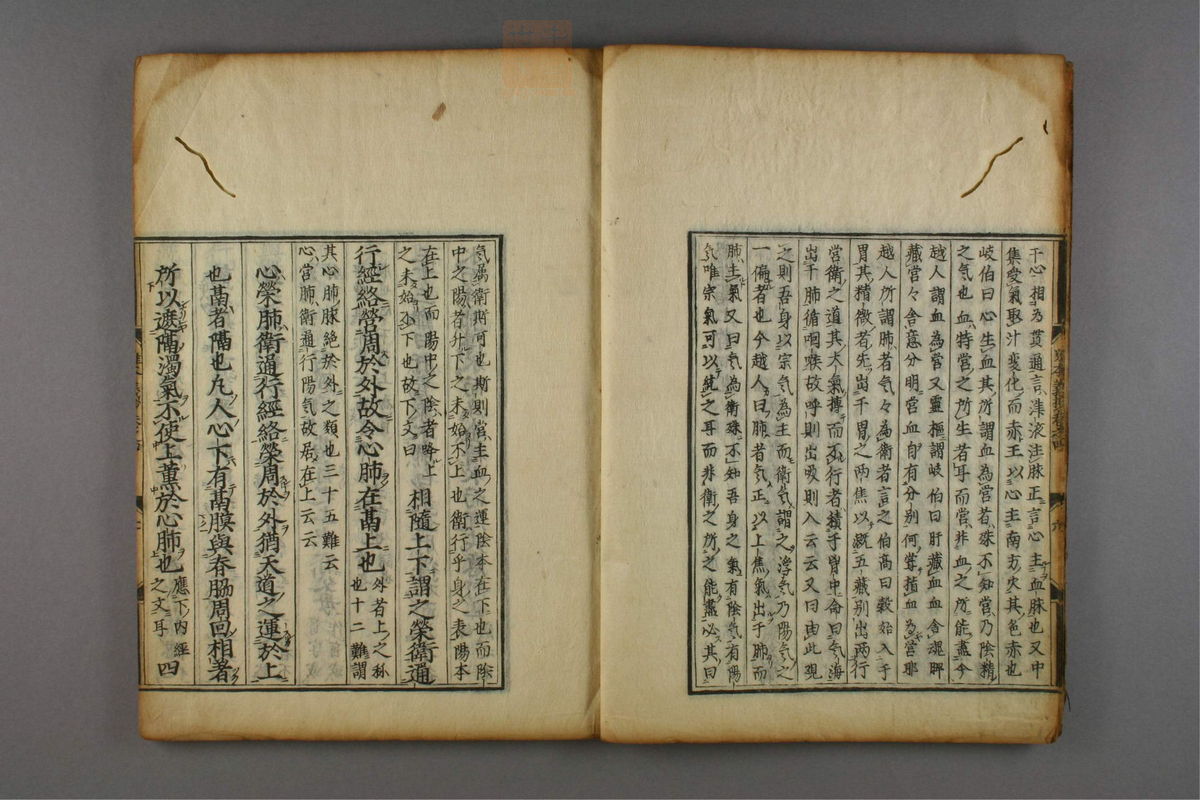 于心相為貫通言津液注脉正言心主血脉也又中
集受氣取汁変化而赤王以心主南方火其色赤也
岐伯曰心生血其所謂血為営者殊不知営乃陰精
之気也血特営之所生者耳而営非血之所能盡今
越人謂血為営又靈樞謂岐伯曰肝蔵血血舎魂脾
蔵営々舎意分明営血自有分別何甞指血為営耶
越人所謂肺者気々為衛者言之伯高曰穀始入于
胃其精微者先出于胃之両焦以溉五蔵別出両行
営衛之道其大氣摶而不行者積于胷中命曰気海
出于肺循咽喉故呼則出吸則入云云又曰由此覌
之則吾身以宗気為主而衛気謂之浮気乃陽気之
一偏者也今越人曰肺者気正以上焦氣出于肺而
肺主氣又曰気為衛殊不知吾身之氣有陰気有陽
気唯宗氣可以統之耳而非衛之所之能盡必其曰
気為衛斯可也斯則営主血之運陰本在下也而陰
中之陽者升下之未始不上也衛行乎身之表陽本
在上也而陽中之陰者降上
之未始不下也故下文曰
相隨上下謂之榮衛通
行經絡營周於外故令心肺在鬲上也
外者上之称
也十二難謂
其心肺脉絶於外之類也三十五難云
心営肺衛通行陽気故居在上云云
心榮肺衛通行經絡榮周於外猶天道之運於上
也鬲者隔也凡人心下有鬲膜與脊脇周回相著
所以遮隔濁氣不使上薫於心肺也
應下内經
之文耳
四